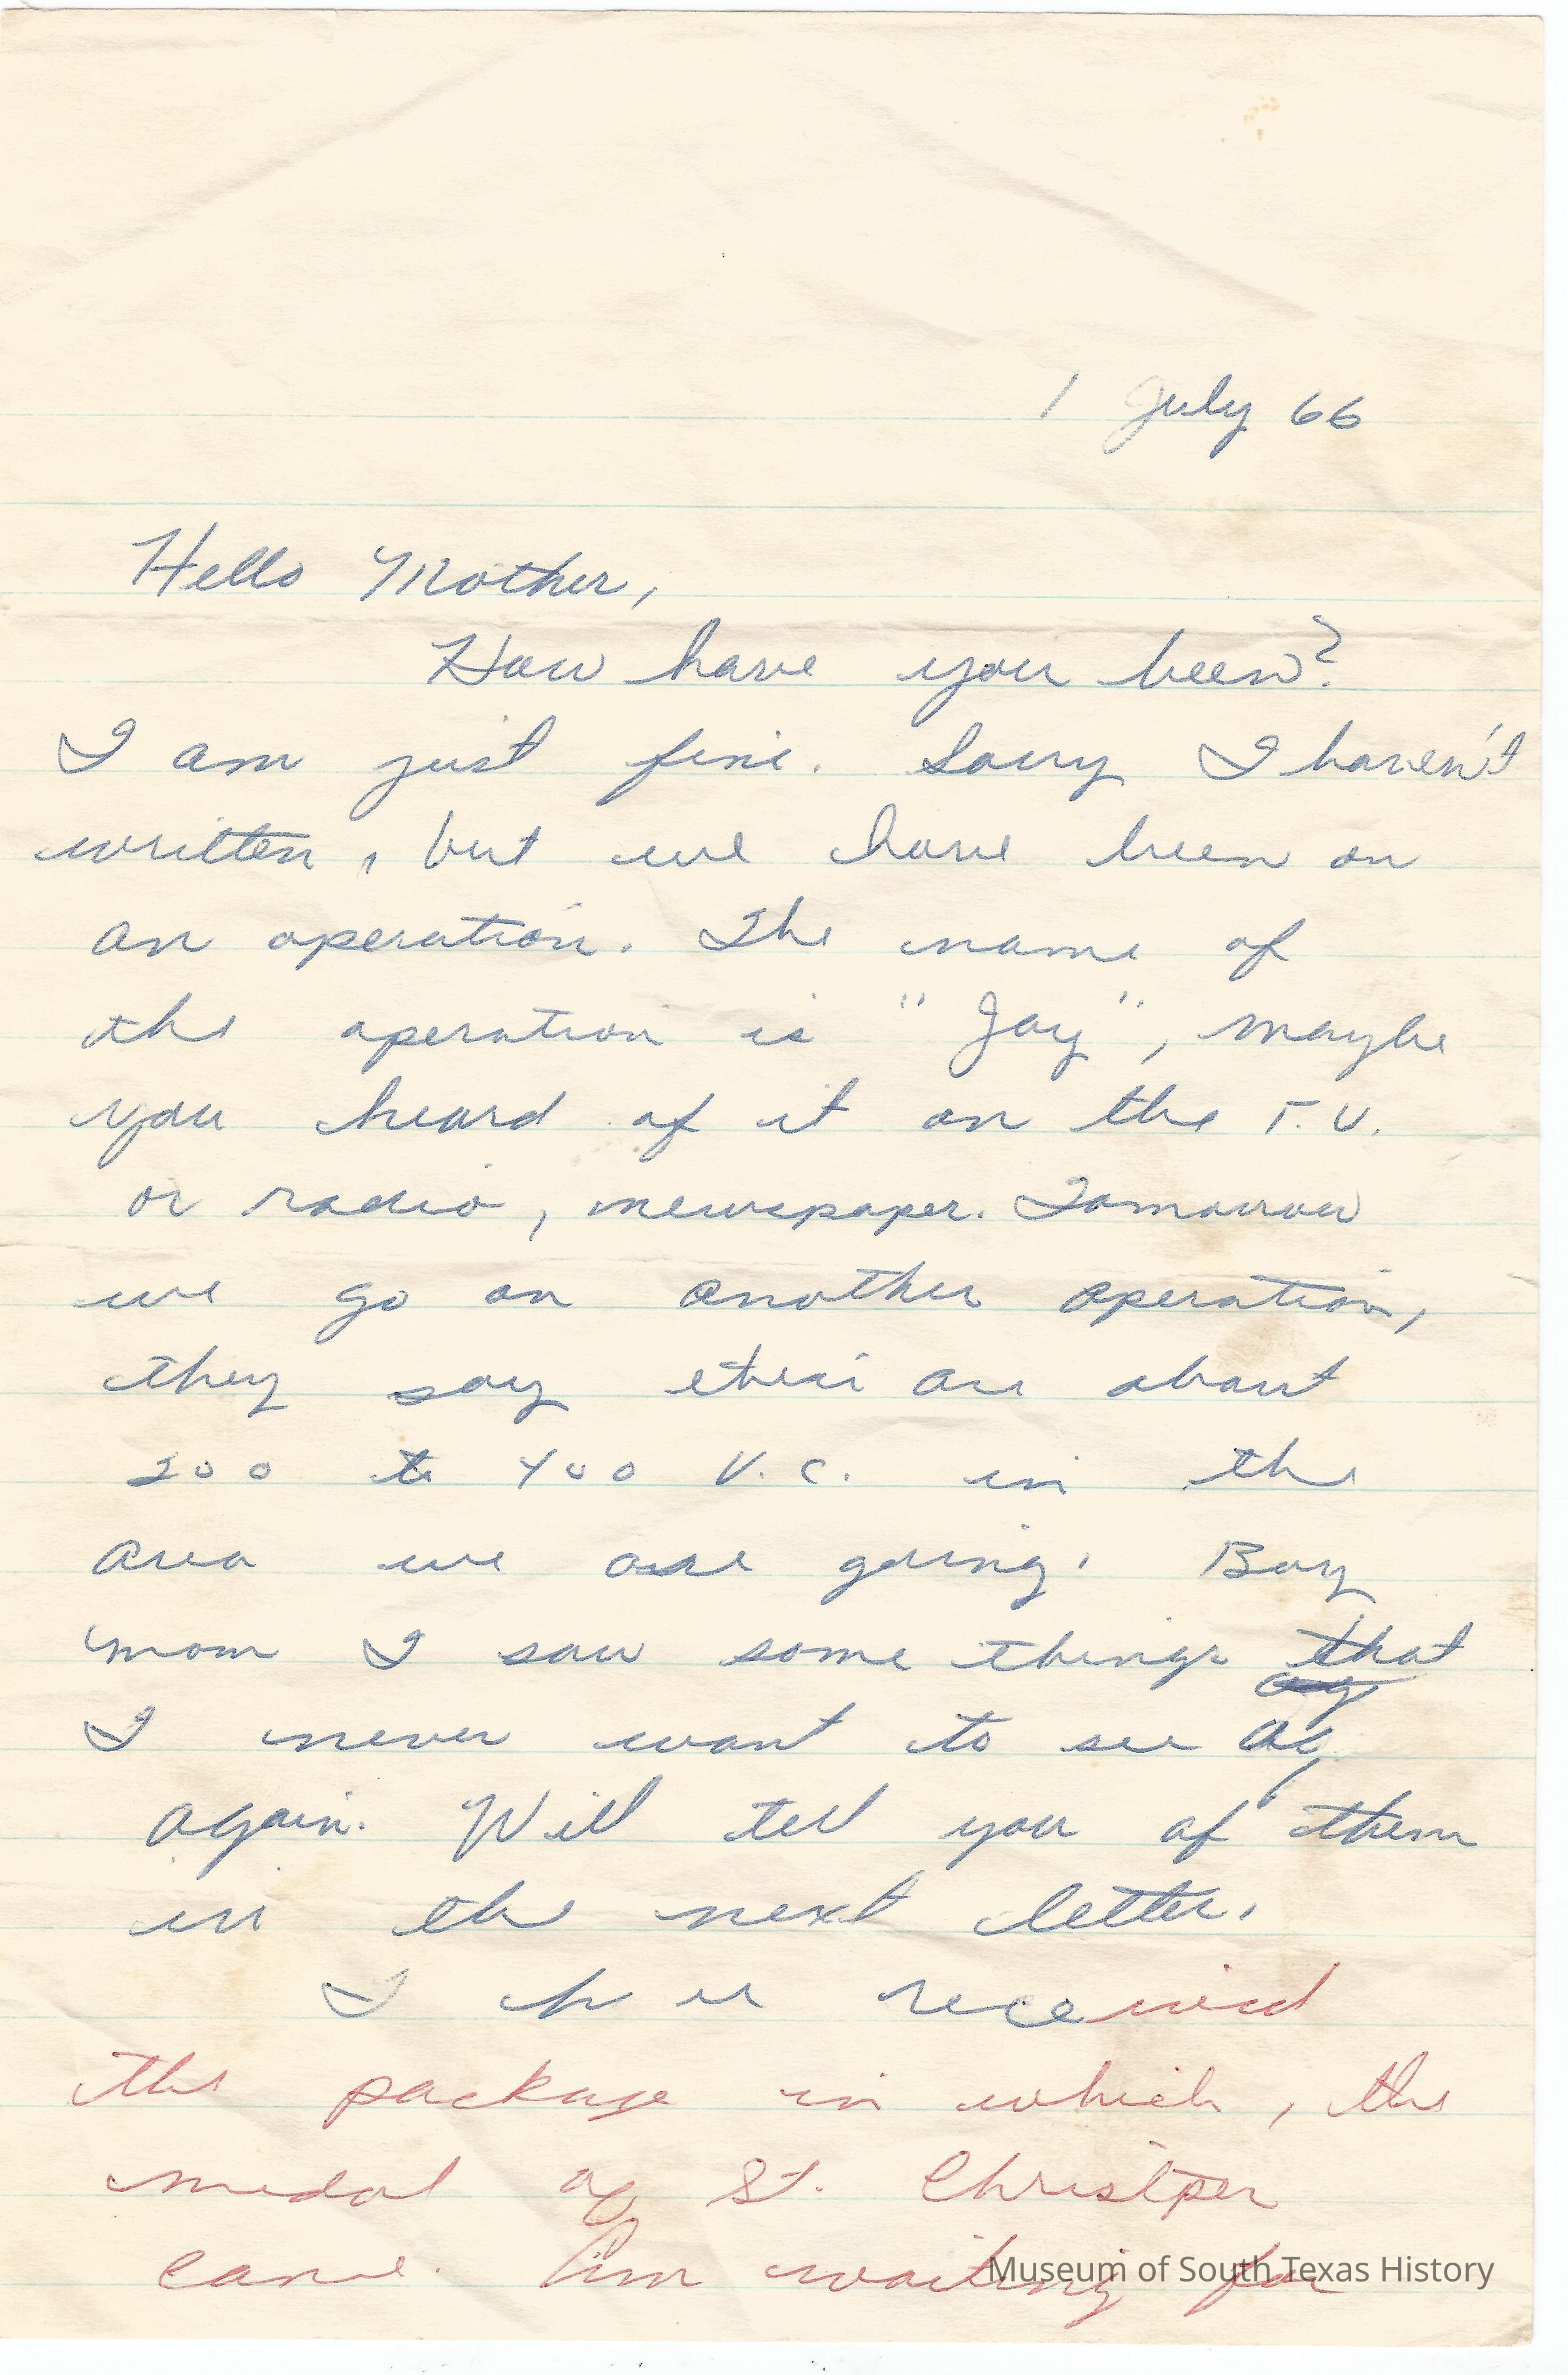 1 July 66
Hello Mother,
How have you been?
I am just fine. Sorry I haven't
written, but we have been on
an operation. The name of
the operation is "Jay", maybe
you heard of it on the T.V.
or radio, newspaper. Tomorrow
we go on another operation,
they say their are about
200 to 400 V.C. in the
area we are going. Boy
mom I saw some things that
I never want to see
again. Will tell you of them
in the next letter.
I received
the package in which, the
medal of St. Christper
came. Am waiting for
Museum of South Texas History